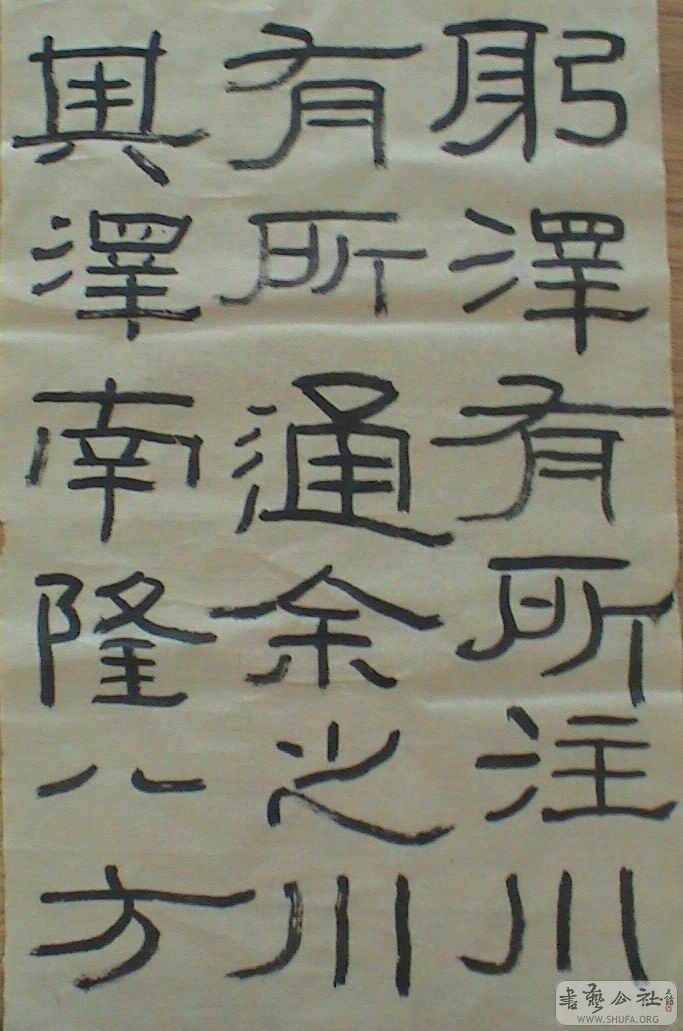 躬澤有所注川
有所通余之川
其澤南隆八方
書藝公社
WWW.SHUFA.ORG